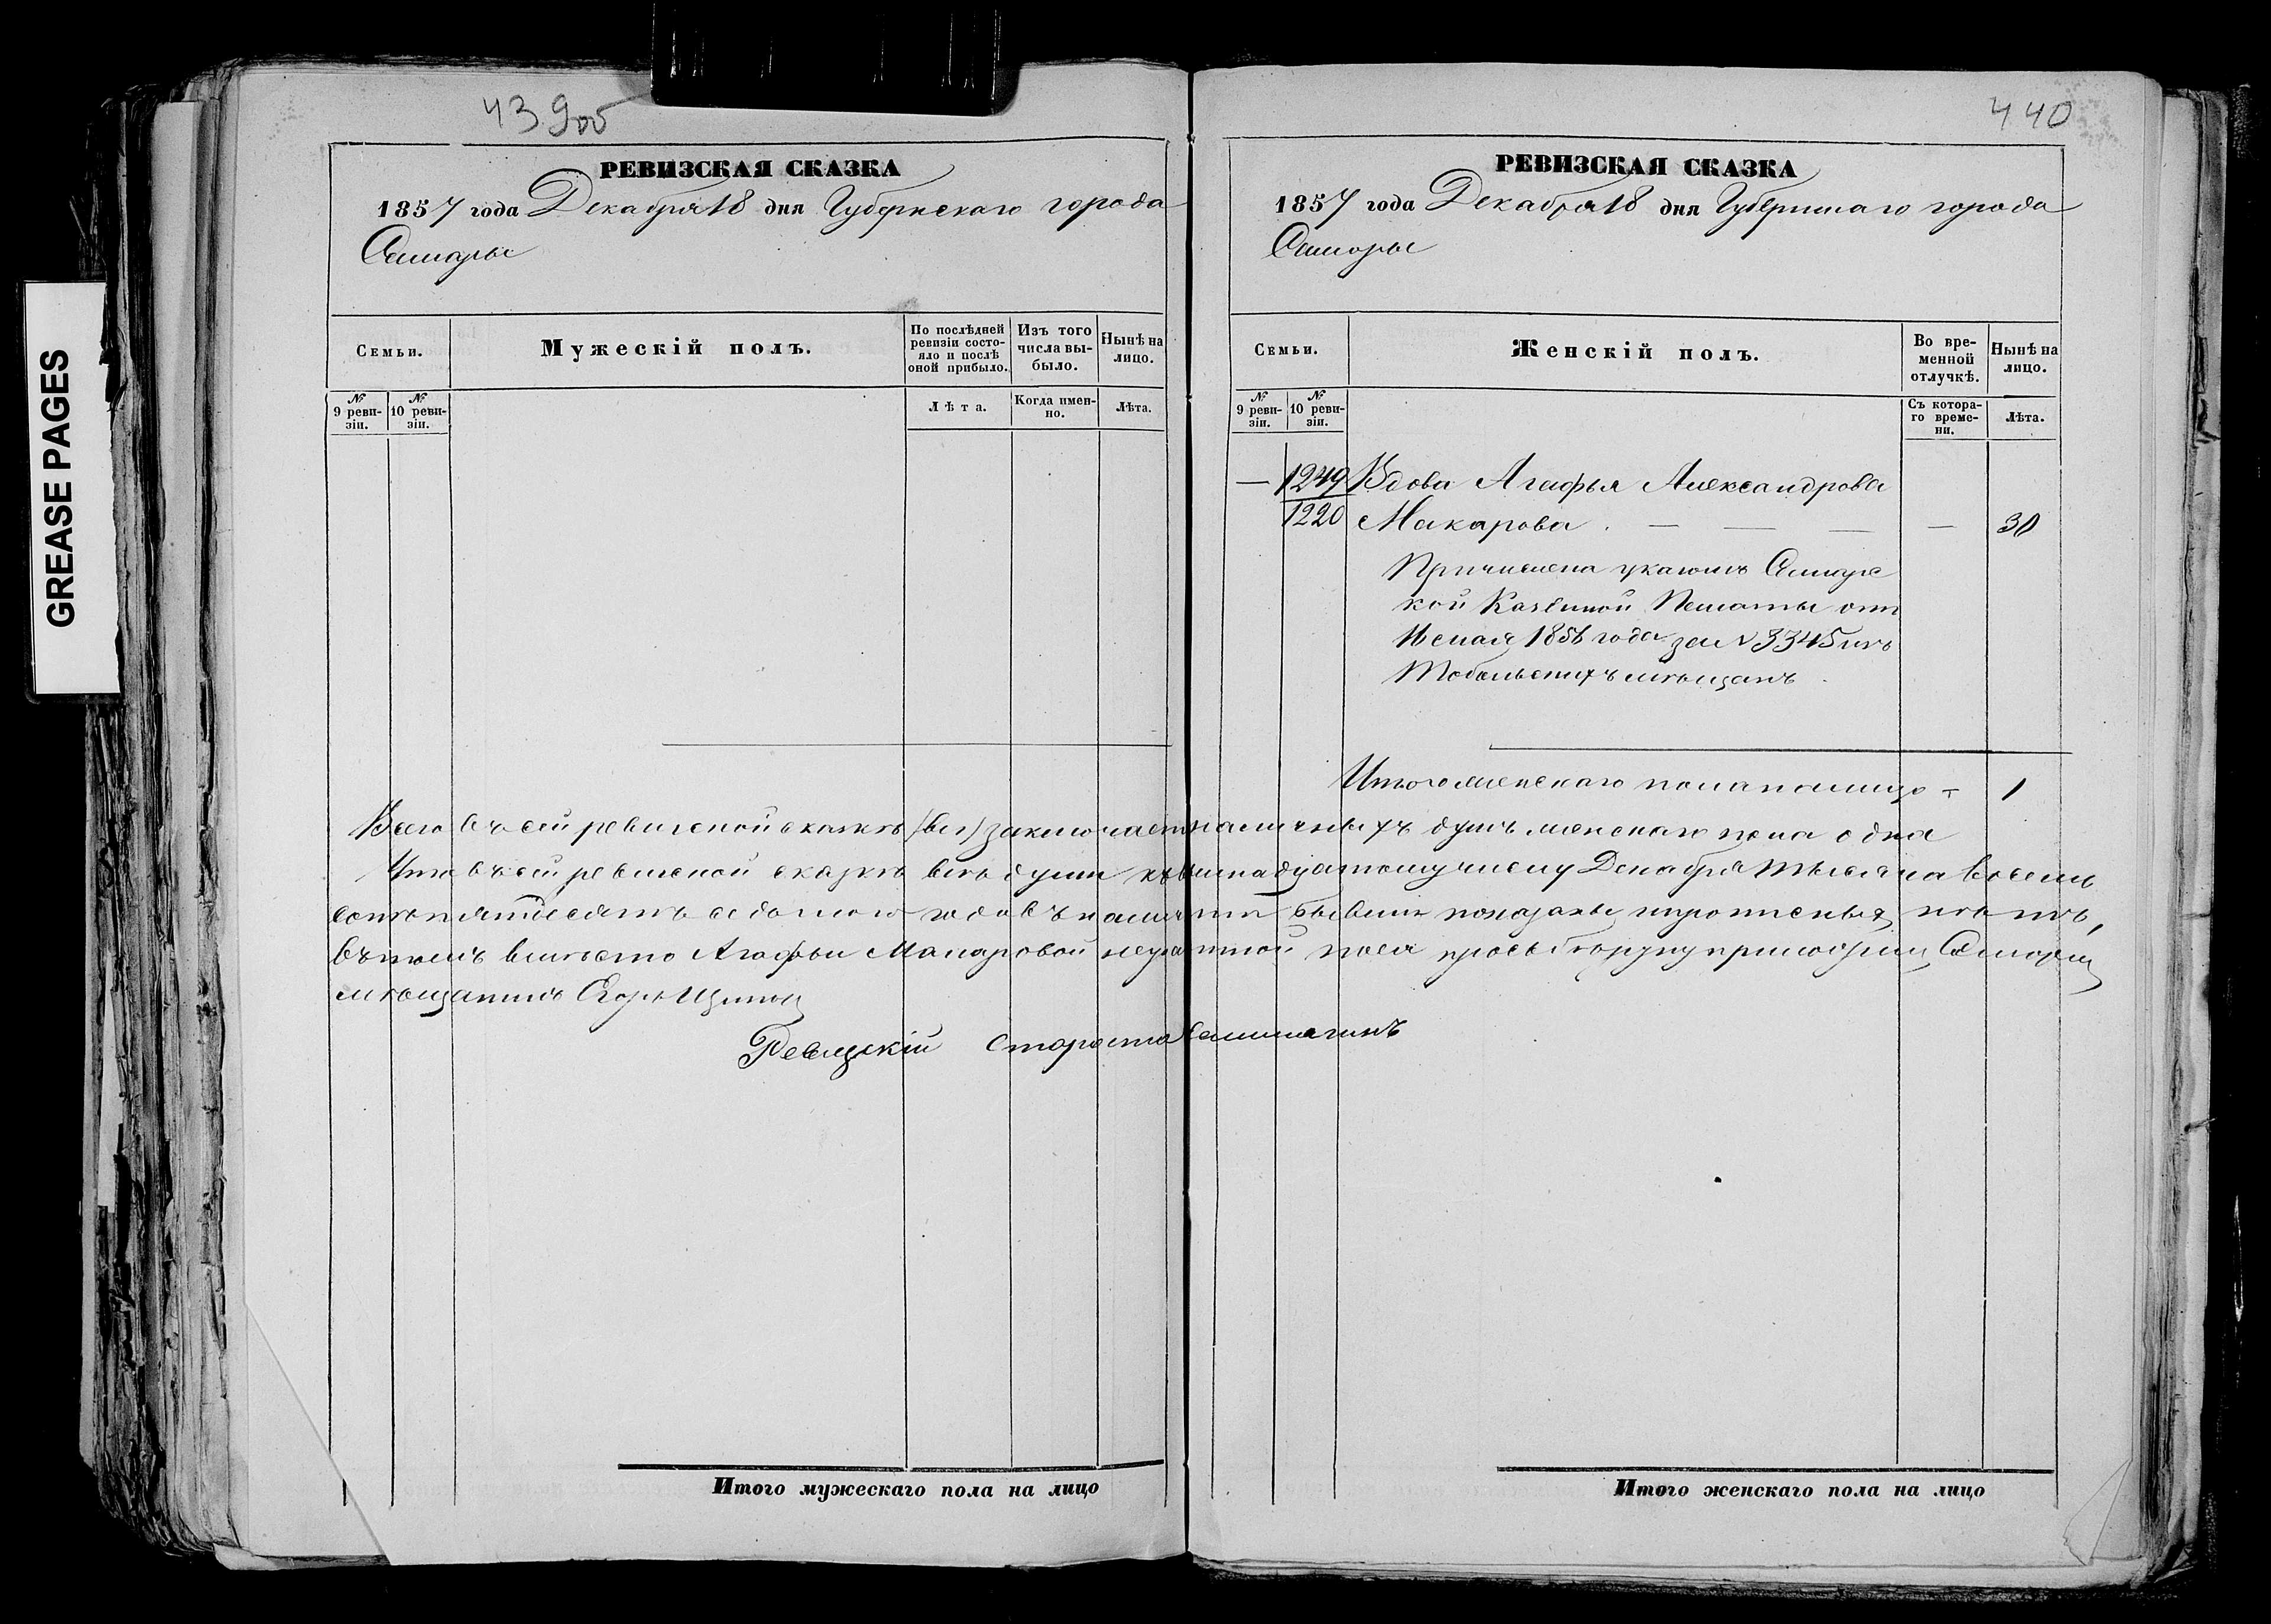 GREASE PAGES
439об
РЕВИЗСКАЯ СКАЗКА
1857 года Декабря 18 дня Губернскаго города
Самары
Семьи.
Мужескій полъ.
По послѣдней ревизіи состояло и послѣ оной прибыло.
Изъ того числа выбыло.
Нынѣ на лицо.
№ 9 ревизіи.
№ 10 ревизіи.
Лѣта.
Когда именно.
Лѣта.
440
РЕВИЗСКАЯ СКАЗКА
1857 года Декабря 18 дня Губернскаго города
Самары
Семьи.
Женскій полъ.
Во временной отлучкѣ.
Нынѣ на лицо.
№ 9 ревизіи.
№ 10 ревизіи.
Съ котораго времени.
Лѣта.
— 1249 Вдова Агафья Александрова
1220 Макарова . — — — — 30
Причислена указомъ Самарс
кой Казенной Палаты отъ
мая 1856 года за № 3345 изъ
Тобольскихъ мѣщанъ.
Итого женскаго пола на лицо — 1
Всего въ сей ревизской сказкѣ заключается наличныхъ душъ женскаго пола одна
Что въ сей ревизской сказкѣ всѣ души къ надцатому числу Декабря тысяча восемь
сотъ пятдесятъ седьмого года въ наличіи бывшія показаны и прописныхъ нѣтъ,
въ томъ вмѣсто Агафьи Макаровой неграмотной по ея прозьбѣ руку приложилъ Самарскій
мѣщанинъ Егоръ
Ревизскій Староста
Итого мужескаго пола на лицо
Итого женскаго пола на лицо